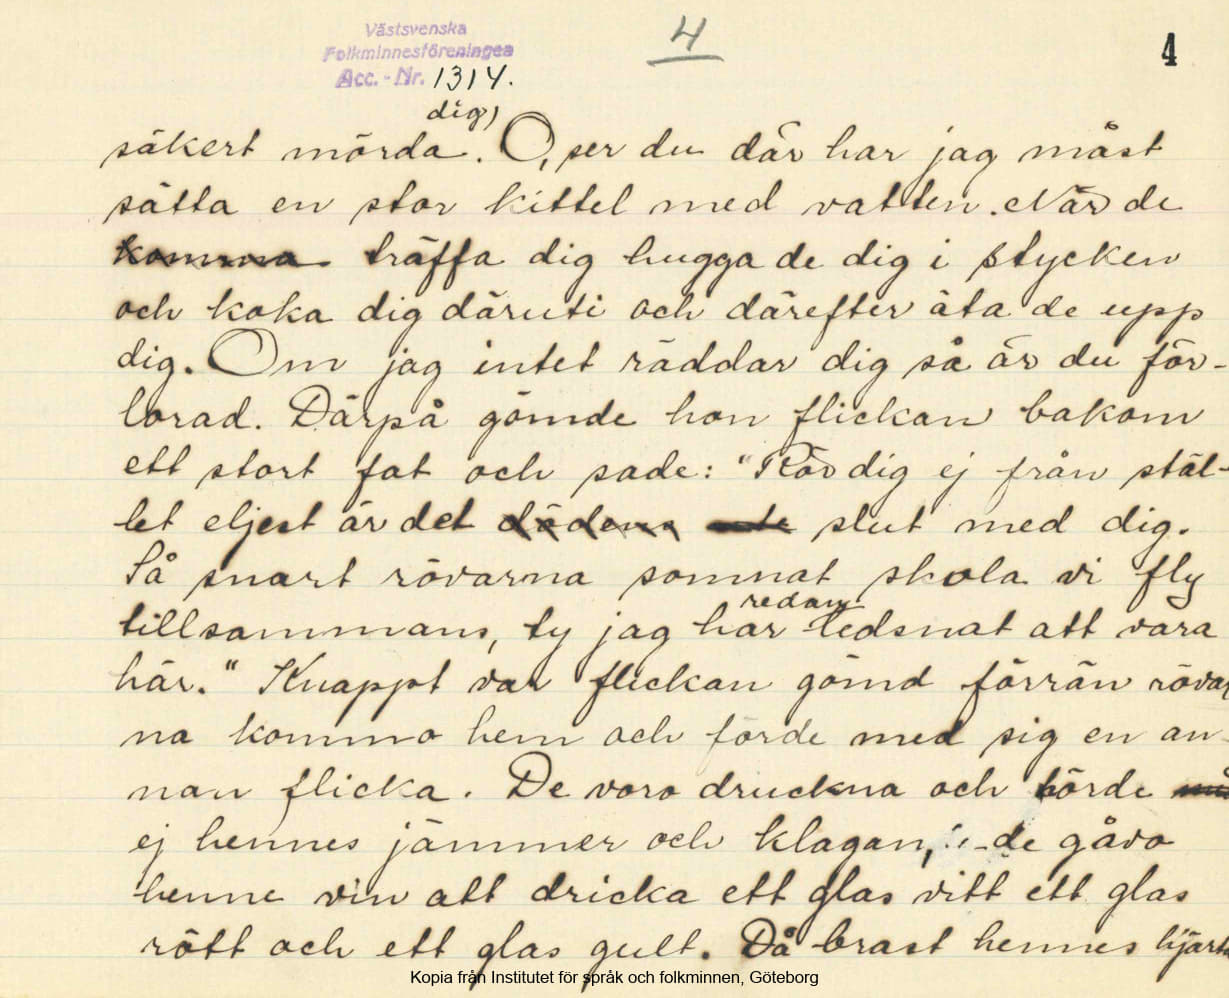 Västsvenska
Folkminnesföreningen
Acc. - Nr. 1314.
4
4
dig)
säkert mörda. O, ser du där har jag måst
sätta en stor kittel med vatten. När de
komma träffa dig hugga de dig i stycken
och koka dig däruti och därefter äta de upp
dig. Om jag intet räddar dig så är du för-
lorad. Därpå gömde hon flickan bakom
ett stort fat och sade: "Rör dig ej från stäl-
let eljest är det dödens slut med dig.
Så snart rövarna somnat skola vi fly
redan
tillsammans, ty jag har ledsnat att vara
här." Knappt var flickan gömd förrän rövar
na kommo hem och förde med sig en an-
nan flicka. De voro druckna och hörde
ej hennes jämmer och klagan, de gåvo
henne vin att dricka ett glas vitt ett glas
rött och ett glas gult. Då brast hennes hjärta
Kopia från Institutet för språk och folkminnen, Göteborg